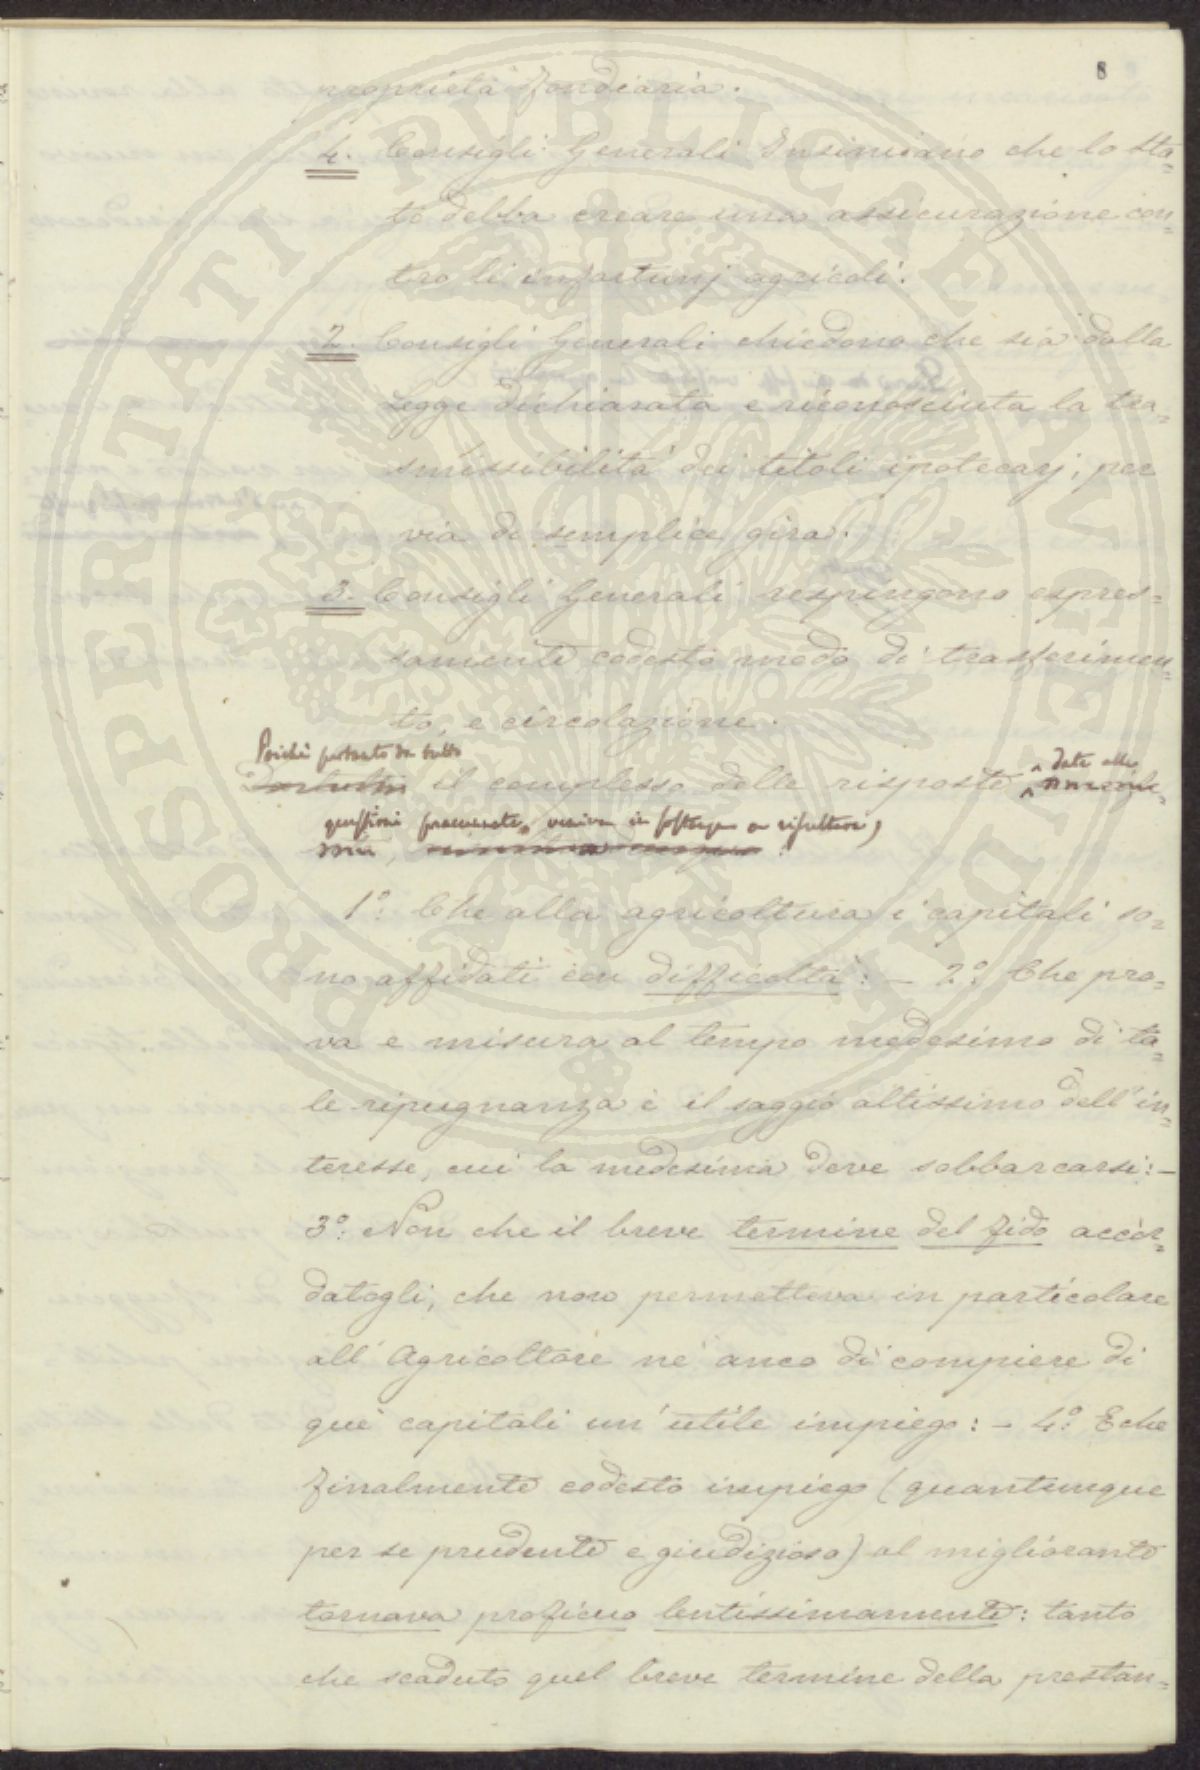 8
proprietà fondiaria.
4. Consigli Generali Insinuano che lo sta=
to debba creare una assicurazione con=
tro li infortunj agricoli.
2. Consigli Generali chiedono che sia dalla
Legge dichiarata e riconosciuta la tra=
smissibilità dei titoli ipotecarj, per
via di semplice gira.
3. Consigli Generali respingono espres=
samente codesto modo di trasferimen=
to, e circolazione.
Poichè pertanto da tutto
il complesso delle risposte date alle
questioni
1.° Che alla agricoltura i capitali so=
no affidati con difficoltà: – 2.° Che pro=
va e misura al tempo medesimo di ta=
le ripugnanza è il saggio altissimo dell'in=
teresse, cui la medesima deve sobbarcarsi: –
3.° Non che il breve termine del fido accor=
datogli, che non permetteva in particolare
all'Agricoltore nè anco di compiere di
que' capitali un'utile impiego: – 4.° E che
finalmente codesto impiego (quantunque
per se prudente e giudizioso) al migliorante
tornava proficuo lentissimamente: tanto
che scaduto quel breve termine della prestan=
PROSPERITATI PUBLICAE AUGENDAE